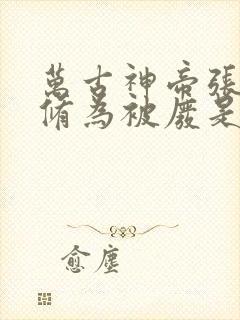 萬古神帝張
脩為被廢是
愈塵